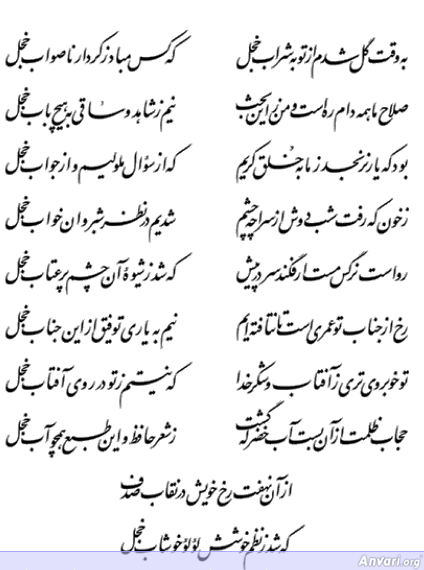 به وقت گل شدم از توبه شراب خجل که کس مباد ز کردار ناصواب خجل
صلاح ما همه دام ره است و من ز این بحث نیم ز شاهد و ساقی به هیچ باب خجل
بود که یار نرنجد ز ما به خلق کریم که از سؤال ملولیم و از جواب خجل
ز خون که رفت شب دوش از سراچه چشم شدیم در نظر شبروان خواب خجل
رواست نرگس مست ار فکند سر در پیش که شد ز شیوهٔ آن چشم پر عتاب خجل
رخ از جناب تو عمری است تا نتافته‌ایم نیم به یاری توفیق از این جناب خجل
تو خوبروی تری ز آفتاب و شکر خدا که نیستم ز تو در روی آفتاب خجل
حجاب ظلمت از آن بست آب خضر که گشت ز شعر حافظ و این طبع همچو آب خجل
از آن نهفت رخ خویش در نقاب صدف
که شد ز نظم خوشش لؤلؤ خوشاب خجل
Anvari.org